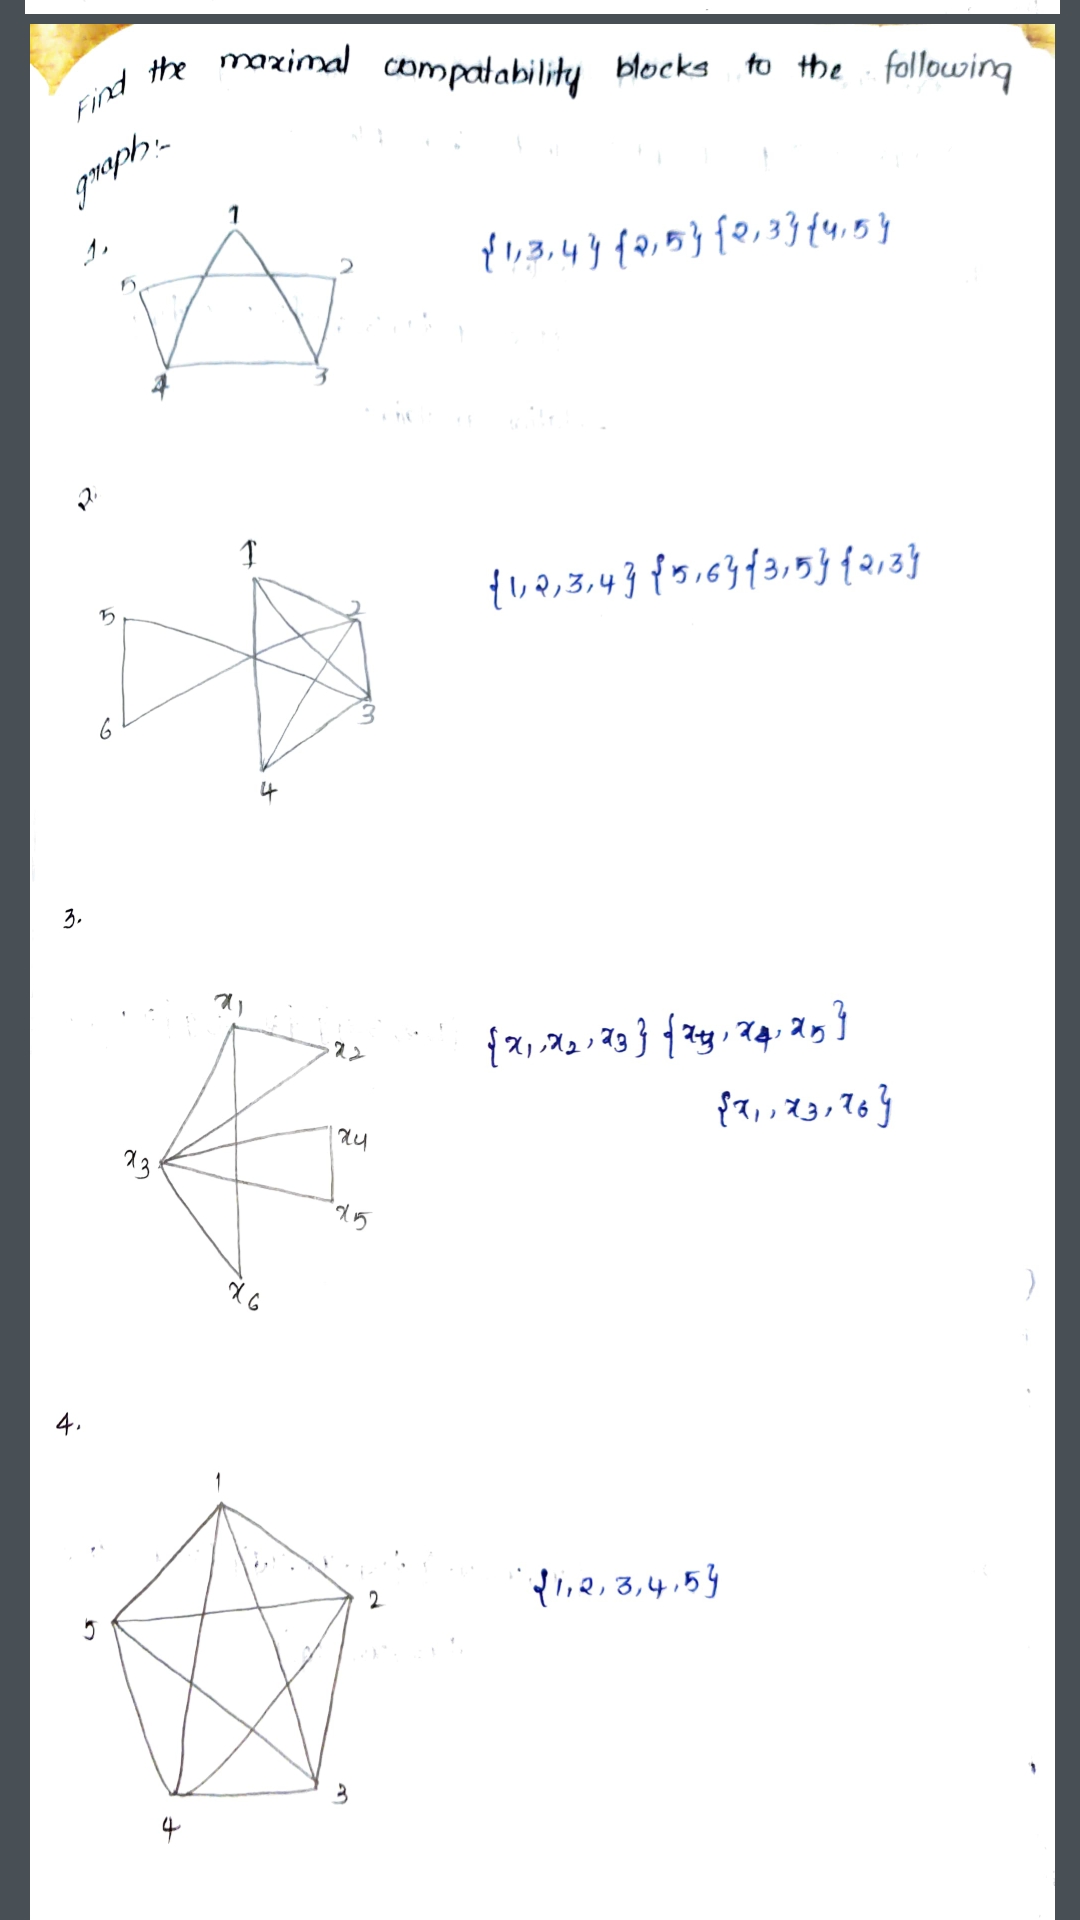 Find the maximal compatability blocks to the following
graph:-
1.
1
5
2
4
3
{1,3,4} {2,5} {2,3} {4,5}
2.
1
5
2
6
3
4
{1,2,3,4} {5,6} {3,5} {2,3}
3.
x1
x2
x3
x4
x5
x6
{x1, x2, x3} {x3, x4, x5}
{x1, x3, x6}
4.
1
5
2
4
3
{1,2,3,4,5}